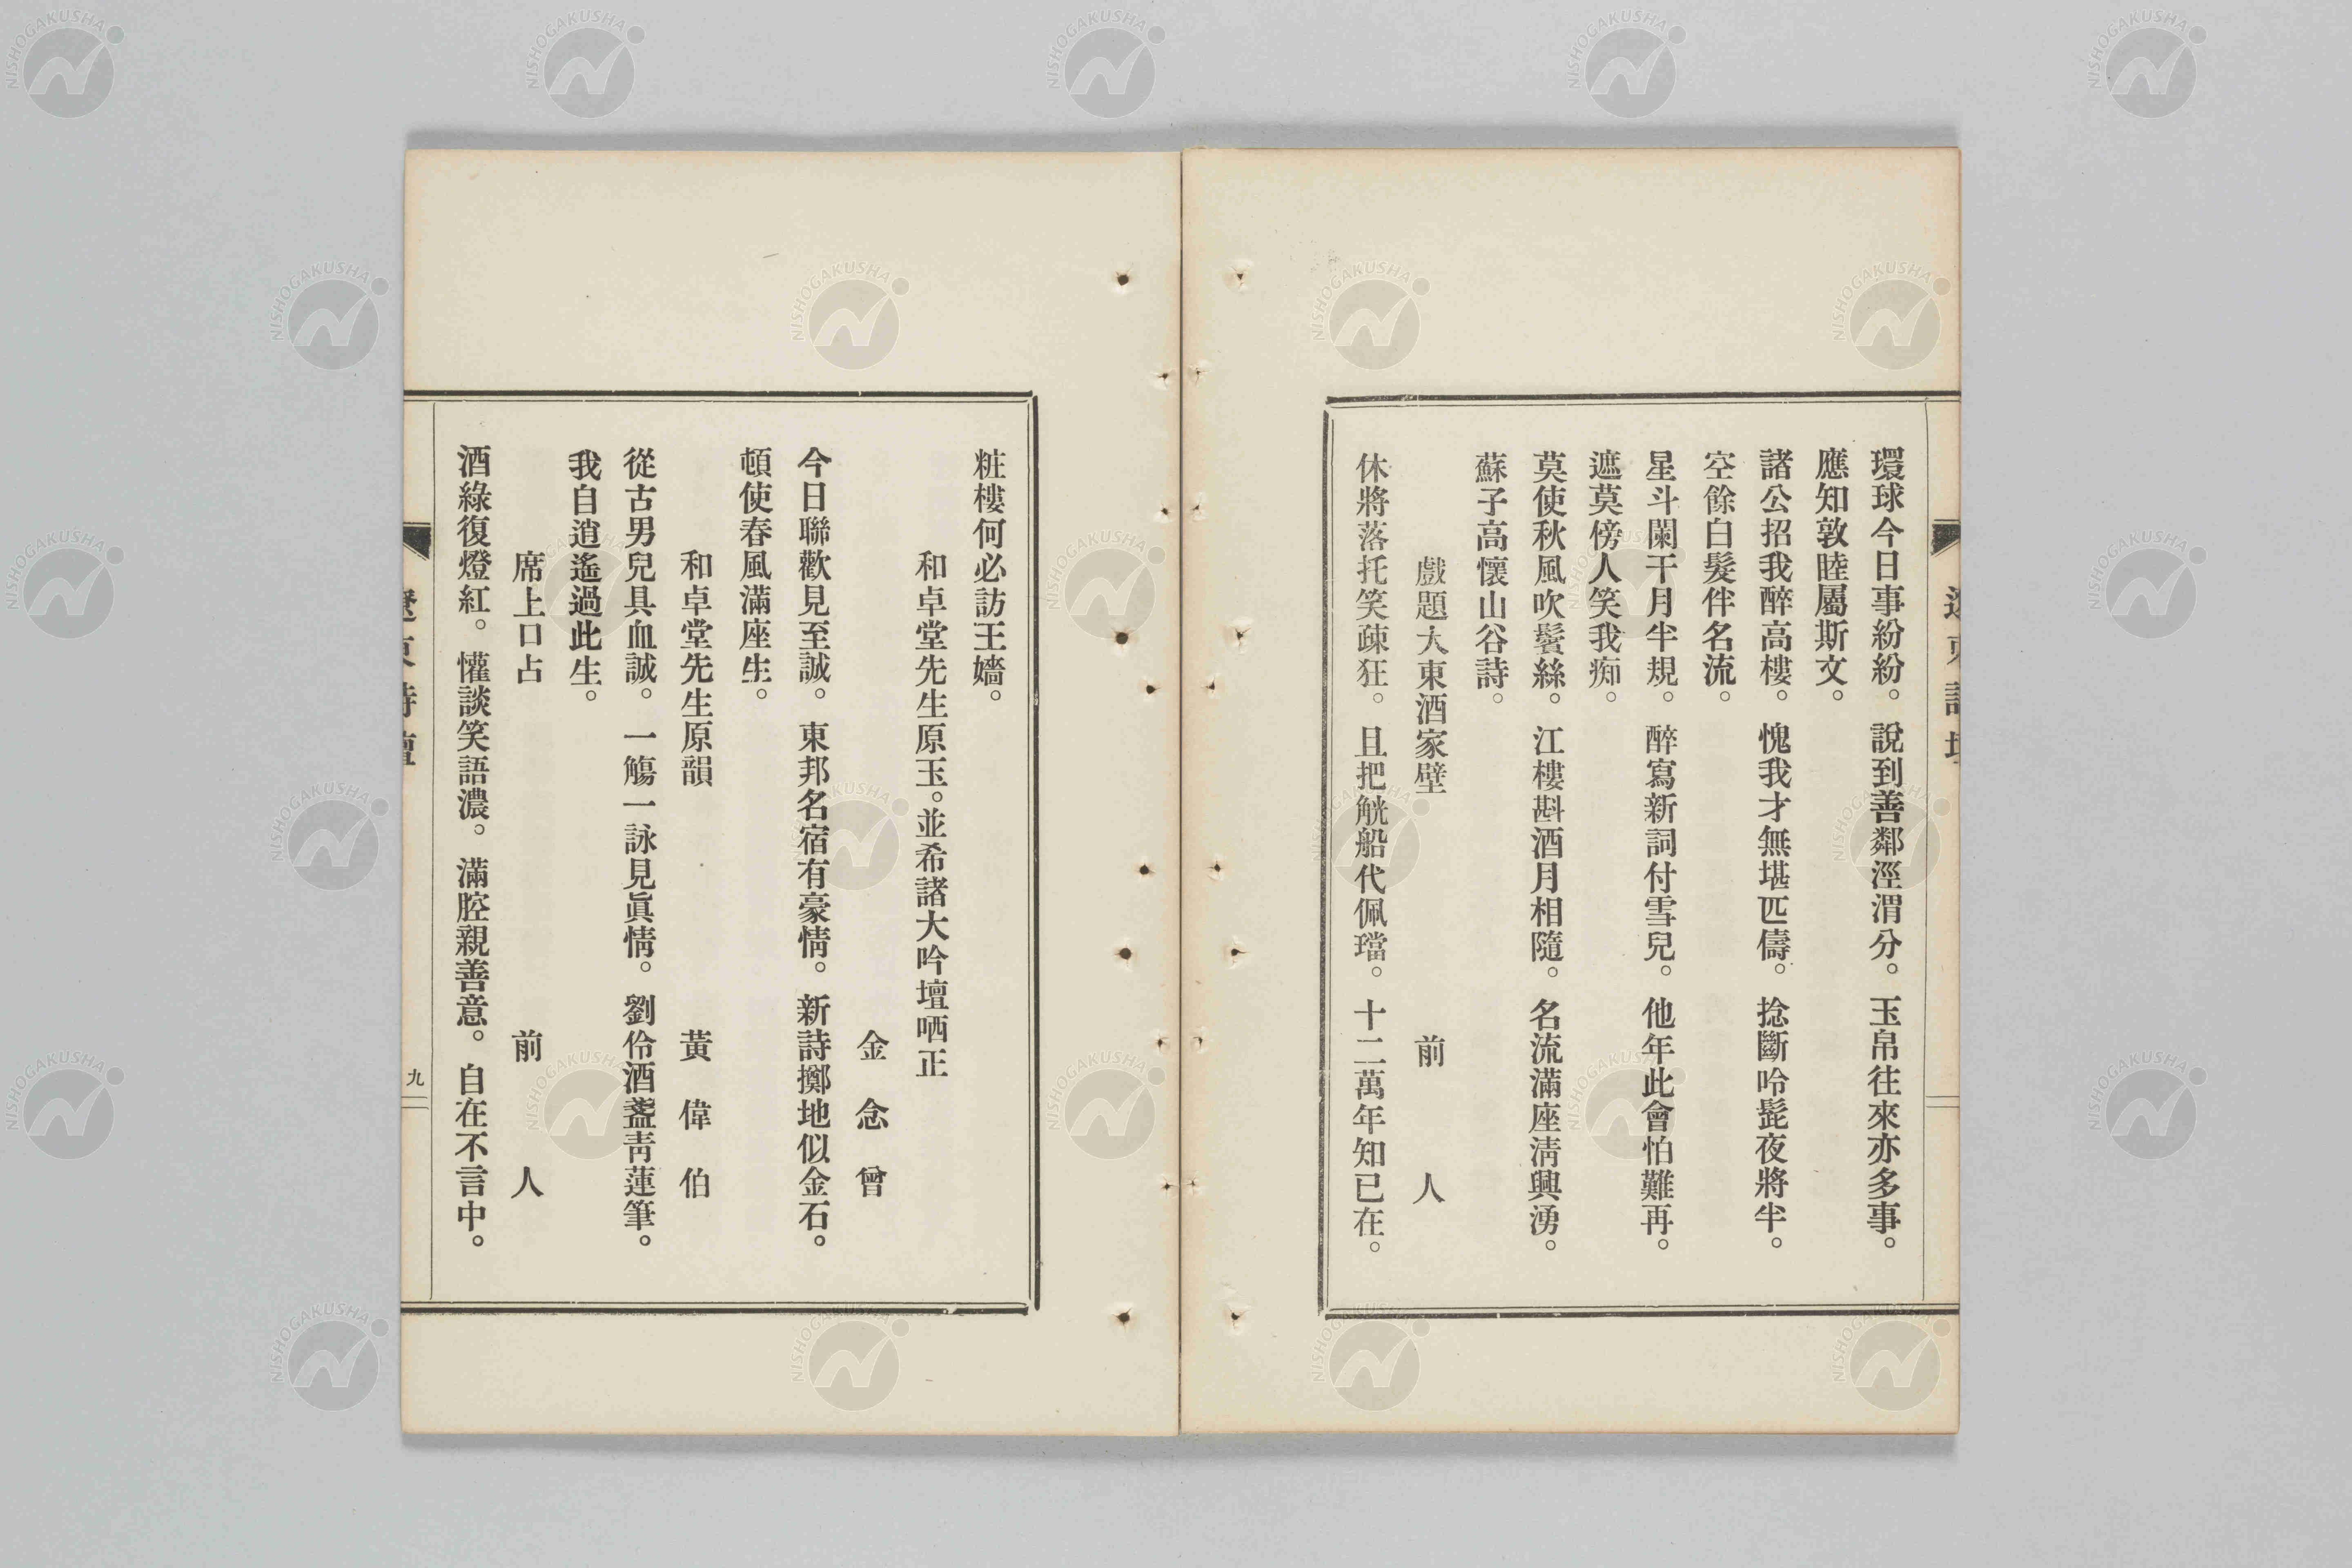 環球今日事紛紛。說到善鄰涇渭分。玉帛往來亦多事。
應知敦睦屬斯文。
諸公招我醉高樓。愧我才無堪匹儔。捻斷吟髭夜將半。
空餘白髮伴名流。
星斗闌干月半規。醉寫新詞付雪兒。他年此會怕難再。
遮莫傍人笑我痴。
莫使秋風吹鬢絲。江樓斟酒月相隨。名流滿座淸興湧。
蘇子高懷山谷詩。
戲題大東酒家壁
前人
休將落托笑疎狂。且把觥船代佩璫。十二萬年知已在。
粧樓何必訪王嬙。
和卓堂先生原玉。並希諸大吟壇哂正
金念曾
今日聯歡見至誠。東邦名宿有豪情。新詩擲地似金石。
頓使春風滿座生。
和卓堂先生原韻
黃偉伯
從古男兒具血誠。一觴一詠見眞情。劉伶酒盞靑蓮筆。
我自逍遙過此生。
席上口占
前人
酒綠復燈紅。懽談笑語濃。滿腔親善意。自在不言中。
遼東詩壇
九